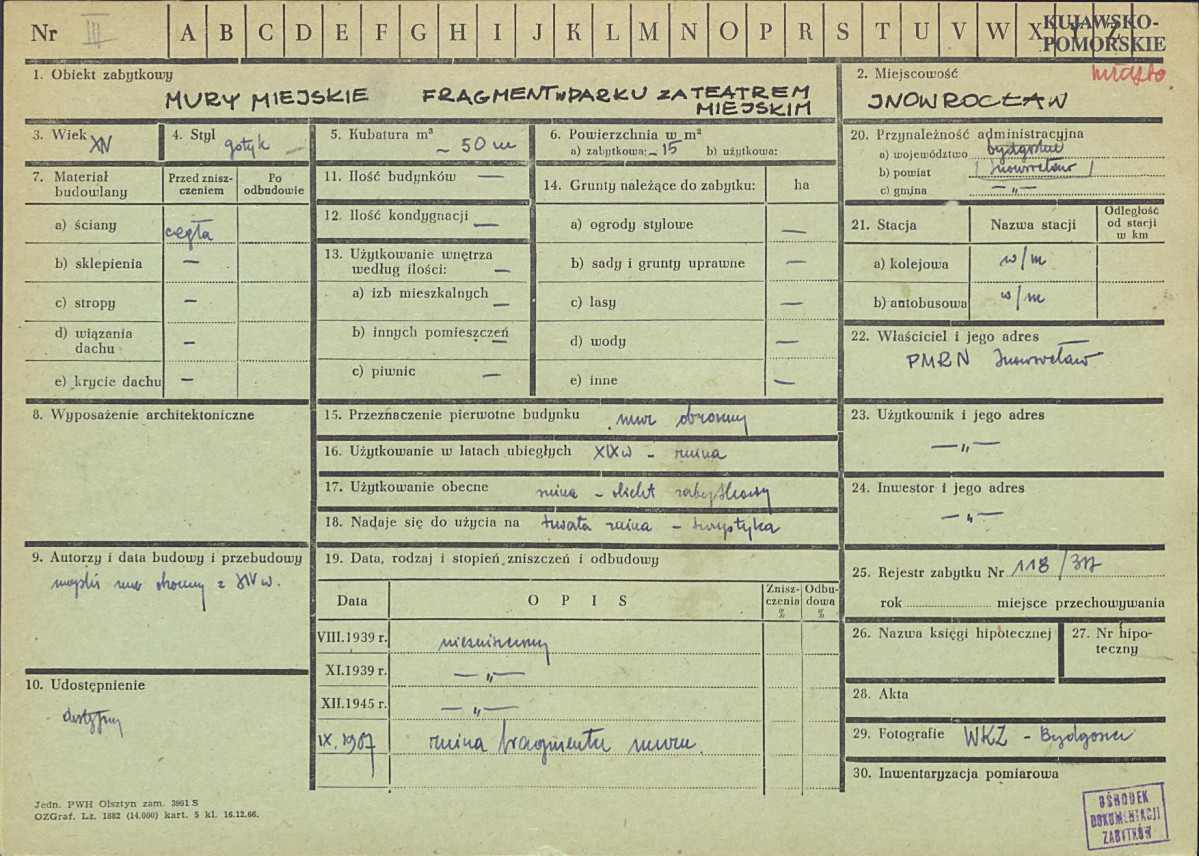 Nr III A B C D E F G H I J K L M N O P R S T U V W X Y Z
KUJAWSKO-
POMORSKIE
1. Obiekt zabytkowy
MURY MIEJSKIE FRAGMENT W PARKU ZA TEATREM
MIEJSKIM
2. Miejscowość
INOWROCŁAW
3. Wiek XIV
4. Styl gotyk
5. Kubatura m³
~ 50 m
6. Powierzchnia w m²
a) zabytkowa: ~ 15 b) użytkowa:
7. Materiał
budowlany
Przed znisz-
czeniem
Po
odbudowie
a) ściany cegła
b) sklepienia —
c) stropy —
d) wiązania
dachu —
e) krycie dachu —
8. Wyposażenie architektoniczne
9. Autorzy i data budowy i przebudowy
miejski mur obronny z XIV w.
10. Udostępnienie
dostępny
11. Ilość budynków —
12. Ilość kondygnacji —
13. Użytkowanie wnętrza
według ilości: —
a) izb mieszkalnych —
b) innych pomieszczeń —
c) piwnic —
14. Grunty należące do zabytku: ha
a) ogrody stylowe —
b) sady i grunty uprawne —
c) lasy —
d) wody —
e) inne —
15. Przeznaczenie pierwotne budynku mur obronny
16. Użytkowanie w latach ubiegłych XIX w - ruina
17. Użytkowanie obecne ruina - obiekt zabytkowy
18. Nadaje się do użycia na trwała ruina - turystyka
19. Data, rodzaj i stopień zniszczeń i odbudowy
Data O P I S Znisz-
czenia
% Odbu-
dowa
%
VIII.1939 r. niezniszczony
XI.1939 r. — „ —
XII.1945 r. — „ —
IX. 1967 ruina fragmentu muru.
20. Przynależność administracyjna
a) województwo bydgoskie
b) powiat Inowrocław
c) gmina — „ —
21. Stacja Nazwa stacji Odległość
od stacji
w km
a) kolejowa w/m
b) autobusowa w/m
22. Właściciel i jego adres
PMRN Inowrocław
23. Użytkownik i jego adres
— „ —
24. Inwestor i jego adres
— „ —
25. Rejestr zabytku Nr 118/317
rok miejsce przechowywania
26. Nazwa księgi hipotecznej
27. Nr hipo-
teczny
28. Akta
29. Fotografie WKZ - Bydgoszcz
30. Inwentaryzacja pomiarowa
Jedn. PWH Olsztyn zam. 3991 S
OZGraf. Lz. 1882 (14.000) kart. 5 kl. 16.12.66.
OŚRODEK
DOKUMENTACJI
ZABYTKÓW